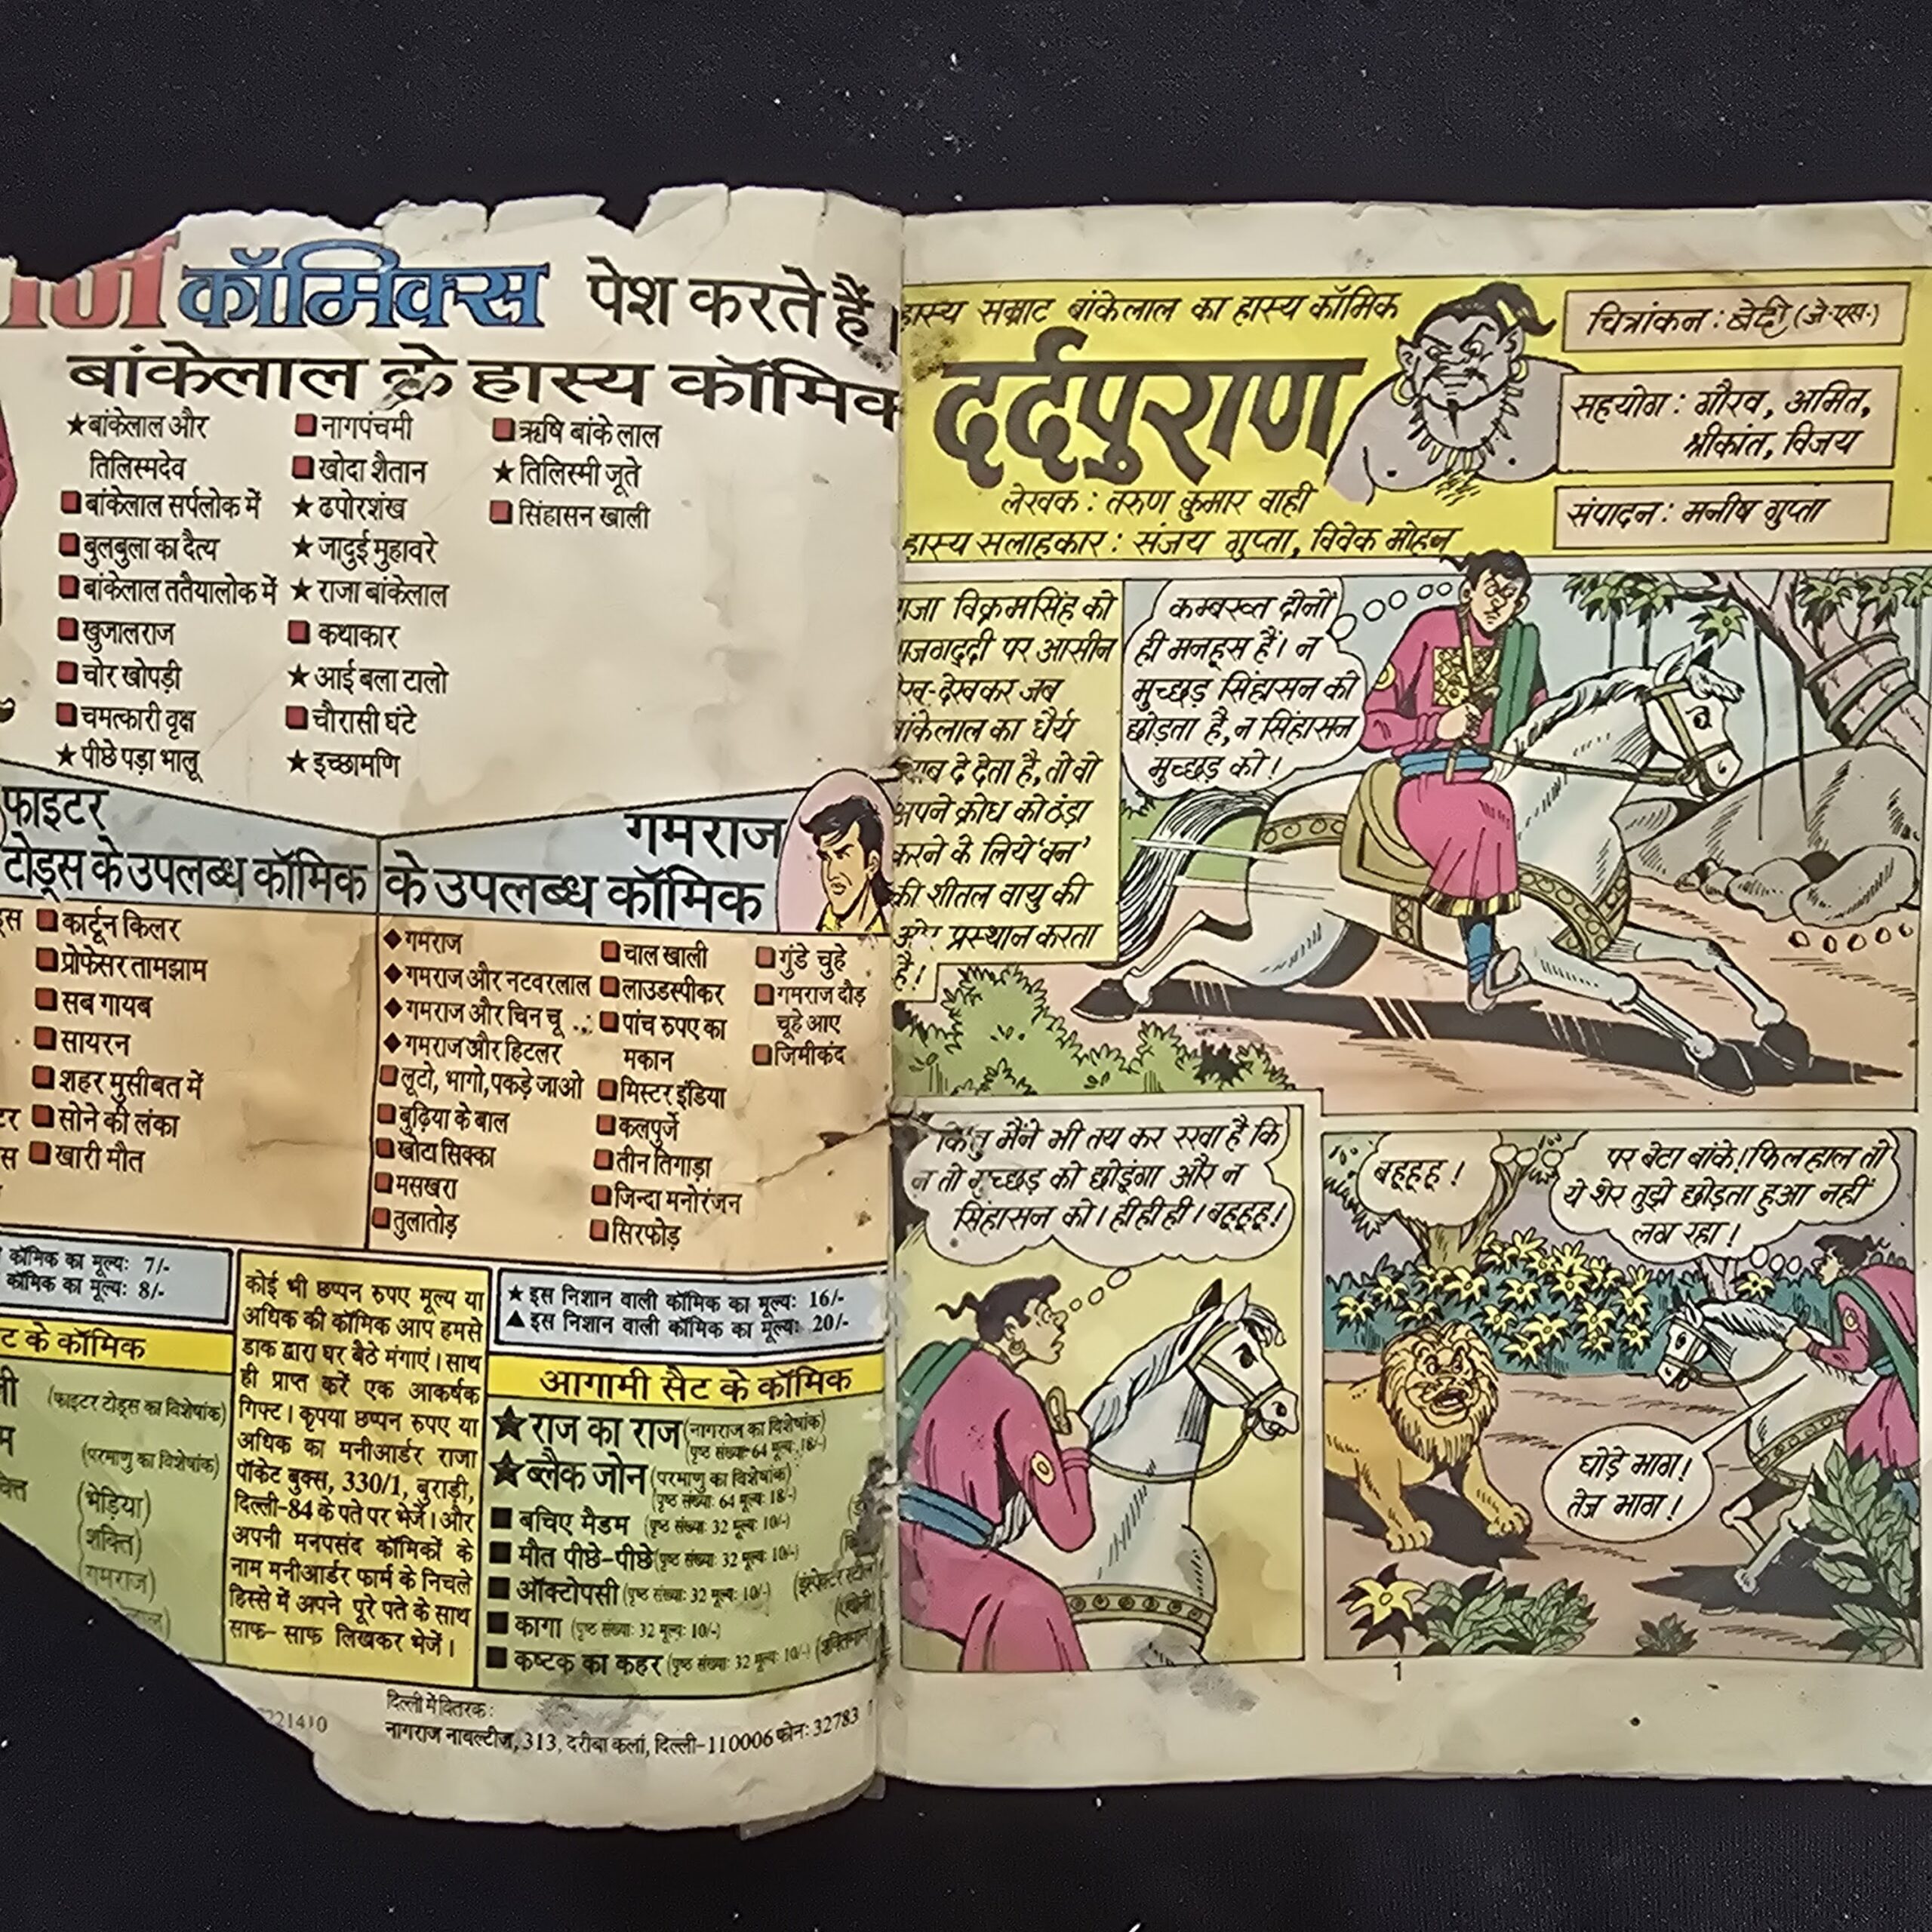 कॉमिक्स पेश करते हैं।
बांकेलाल के हास्य कॉमिक
★बांकेलाल और
तिलिस्मदेव
बांकेलाल सर्पलोक में
बुलबुला का दैत्य
बांकेलाल ततैयालोक में
खुजालराज
चोर खोपड़ी
चमत्कारी वृक्ष
★पीछे पड़ा भालू
नागपंचमी
खोदा शैतान
★ढपोरशंख
★जादुई मुहावरे
★राजा बांकेलाल
कथाकार
★आई बला टालो
चौरासी घंटे
★इच्छामणि
ऋषि बांके लाल
★तिलिस्मी जूते
सिंहासन खाली
फाइटर
टोड्स के उपलब्ध कॉमिक
कार्टून किलर
प्रोफेसर तामझाम
सब गायब
सायरन
शहर मुसीबत में
सोने की लंका
खारी मौत
गमराज
के उपलब्ध कॉमिक
◆गमराज
◆गमराज और नटवरलाल
◆गमराज और चिन चू
◆गमराज और हिटलर
लूटो, भागो, पकड़े जाओ
बुढ़िया के बाल
खोटा सिक्का
मसखरा
तुलातोड़
चाल खाली
लाउडस्पीकर
पांच रुपए का
मकान
मिस्टर इंडिया
कलपुर्जे
तीन तिगाड़ा
जिन्दा मनोरंजन
सिरफोड़
गुंडे चुहे
गमराज दौड़
चूहे आए
जिमीकंद
कॉमिक का मूल्य: 7/-
कॉमिक का मूल्य: 8/-
के कॉमिक
(फाइटर टोड्स का विशेषांक)
(परमाणु का विशेषांक)
(भेड़िया)
(शक्ति)
(गमराज)
कोई भी छप्पन रुपए मूल्य या
अधिक की कॉमिक आप हमसे
डाक द्वारा घर बैठे मंगाएं। साथ
ही प्राप्त करें एक आकर्षक
गिफ्ट। कृपया छप्पन रुपए या
अधिक का मनीआर्डर राजा
पॉकेट बुक्स, 330/1, बुराड़ी,
दिल्ली-84 के पते पर भेजें। और
अपनी मनपसंद कॉमिकों के
नाम मनीआर्डर फार्म के निचले
हिस्से में अपने पूरे पते के साथ
साफ- साफ लिखकर भेजें।
★ इस निशान वाली कॉमिक का मूल्य: 16/-
▲ इस निशान वाली कॉमिक का मूल्य: 20/-
आगामी सैट के कॉमिक
★राज का राज (नागराज का विशेषांक)
(पृष्ठ संख्या-64 मूल्य: 18/-)
★ब्लैक जोन (परमाणु का विशेषांक)
(पृष्ठ संख्या: 64 मूल्य: 18/-)
■ बचिए मैडम (पृष्ठ संख्या: 32 मूल्य: 10/-)
■ मौत पीछे-पीछे (पृष्ठ संख्या: 32 मूल्य: 10/-)
■ ऑक्टोपसी (पृष्ठ संख्या: 32 मूल्य: 10/-)
■ कागा (पृष्ठ संख्या: 32 मूल्य: 10/-)
■ कष्टक का कहर (पृष्ठ संख्या: 32 मूल्य: 10/-)
221410
दिल्ली में वितरक:
नागराज नावल्टीज, 313, दरीबा कलां, दिल्ली-110006 फोन: 32783
हास्य सम्राट बांकेलाल का हास्य कॉमिक
दर्दपुराण
लेखक : तरुण कुमार वाही
हास्य सलाहकार : संजय गुप्ता, विवेक मोहन
चित्रांकन : बेदी (जे॰एस॰)
सहयोग : गौरव, अमित,
श्रीकांत, विजय
संपादन : मनीष गुप्ता
विक्रमसिंह को
पर आसीन
देखकर जब
बांकेलाल का धैर्य
दे देता है, तो वो
अपने क्रोध को ठंडा
करने के लिये 'वन'
की शीतल वायु की
ओर प्रस्थान करता
है!
कम्बख्त दोनों
ही मनहूस हैं। न
मुच्छड़ सिंहासन को
छोड़ता है, न सिंहासन
मुच्छड़ को!
किंतु मैंने भी तय कर रखा है कि
न तो मुच्छड़ को छोडूंगा और न
सिंहासन को। हीहीही। बहूहूहू!
बहूहूहू!
पर बेटा बांके! फिलहाल तो
ये शेर तुझे छोड़ता हुआ नहीं
लग रहा!
घोड़े भाग!
तेज भाग!
1